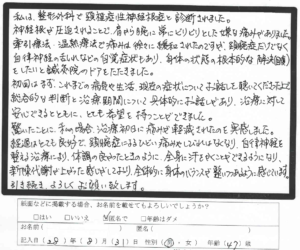 私は、整形外科で頸椎症性神経根症と診断されました。
神経根が圧迫されることで、首から腕に常にビリビリとした嫌な痛みがありました。
牽引療法・温熱療法で痛みは徐々に緩和されたのですが、頸椎症だけでなく
自律神経の乱れなどの自覚症状もあり、身体の状態の根本的な解決
をしたいと鍼灸院のドアをたたきました。
初回はまず、これまでの病気や生活、現在の症状についてお話して聴くくださった上
総合的な判断と治療期間について具体的にお話があり、治療に対して
安心できるとともに、とても希望を持つことができました。
驚いたことに、私の場合、治療初日に痛みが軽減されたのを実感しました。
経過はとても良好で、頸椎症によるしびれ、痛みやしびれはなくなり、自律神経を
整える治療により、体調の良かったときのように、全身に汗をかくことができるようになり、
新陳代謝が上がった感じがしており、全体的に身体のバランスが整いつつあるように感じています
引き続き、よろしくお願い致します。
紙面などに掲載する場合、お名前を載せてもよろしいでしょうか？
□はい □いいえ ☑匿名で □年齢はダメ
お名前( ) 匿名( )
記入日(28)年(8)月(31)日 性別(男・女) 年齢(47)歳